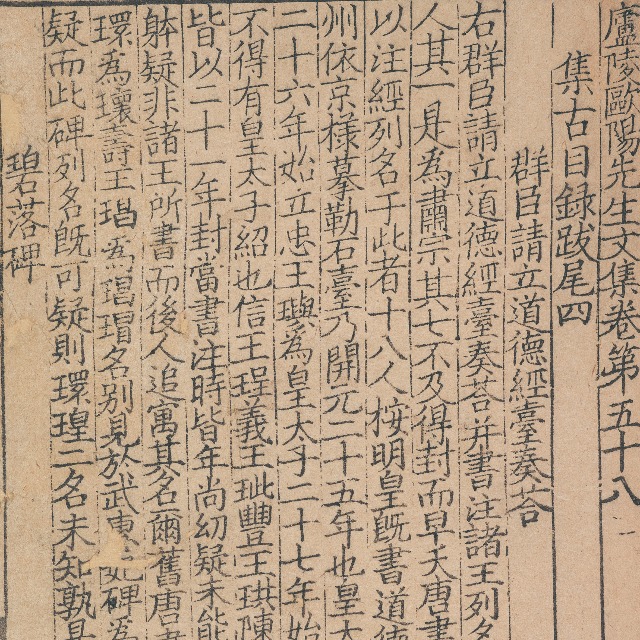 廬陵歐陽先生文集卷第五十八
集古目録跋尾四
群臣請立道德經臺奏荅
右群臣請立道德經臺奏荅并書注諸王列名
人其一是為肅宗其七不及得封而早夭唐書
以注經列名于此者十八人按明皇既書道德
州依京様摹勒石臺乃開元二十五年也皇太
二十六年始立忠王璵為皇太子二十七年始
不得有皇太子紹也信王珵義王玼豐王珙陳
皆以二十一年封當書注時皆年尚幼疑未能
躰疑非諸王所書而後人追寓其名爾舊唐書
環為瓌壽王瑁為琩瑁名别見於武惠妃碑為
疑而此碑列名既可疑則環瑝二名未知孰是
碧落碑